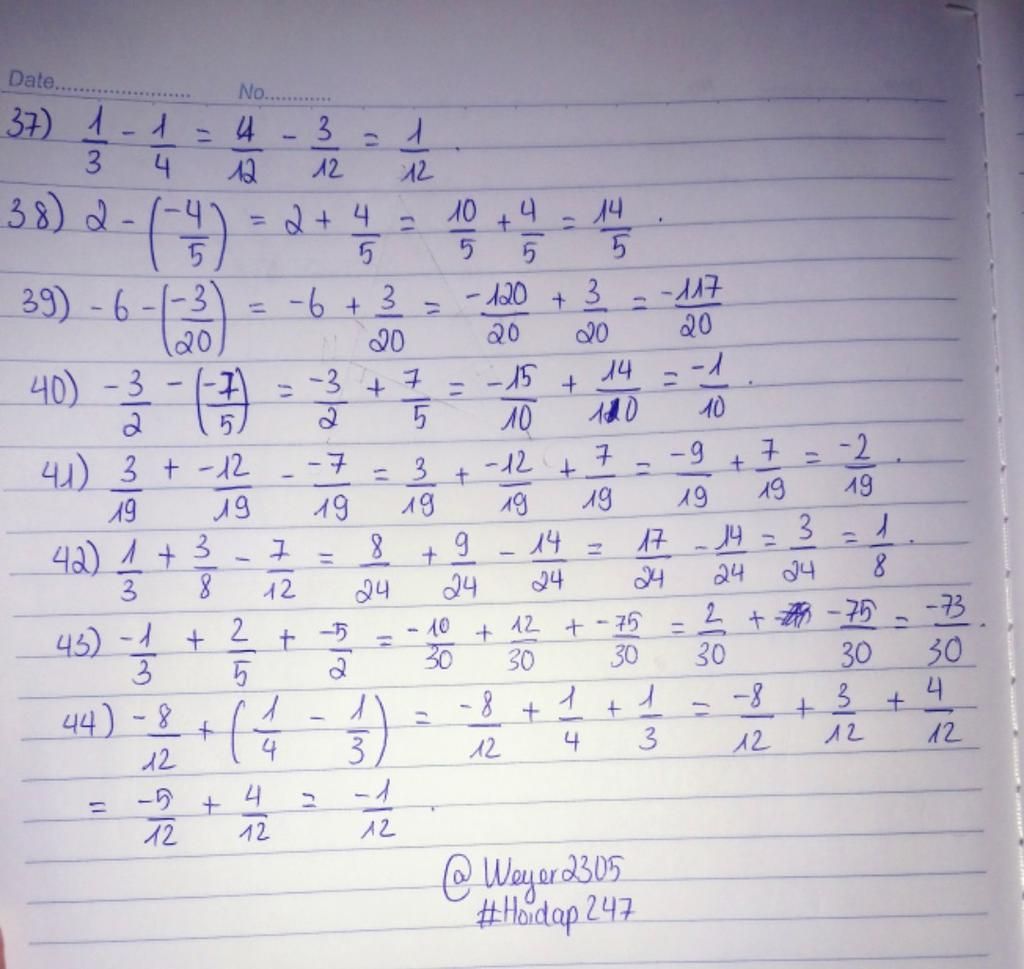 Date........................ No............
37) 1/3 - 1/4 = 4/12 - 3/12 = 1/12.
38) 2 - (-4/5) = 2 + 4/5 = 10/5 + 4/5 = 14/5.
39) -6 - (-3/20) = -6 + 3/20 = -120/20 + 3/20 = -117/20
40) -3/2 - (-7/5) = -3/2 + 7/5 = -15/10 + 14/10 = -1/10.
41) 3/19 + -12/19 - -7/19 = 3/19 + -12/19 + 7/19 = -9/19 + 7/19 = -2/19.
42) 1/3 + 3/8 - 7/12 = 8/24 + 9/24 - 14/24 = 17/24 - 14/24 = 3/24 = 1/8.
43) -1/3 + 2/5 + -5/2 = -10/30 + 12/30 + -75/30 = 2/30 + -75/30 = -73/30.
44) -8/12 + (1/4 - 1/3) = -8/12 + 1/4 + 1/3 = -8/12 + 3/12 + 4/12
= -5/12 + 4/12 = -1/12.
@Weyer2305
#Hoidap247